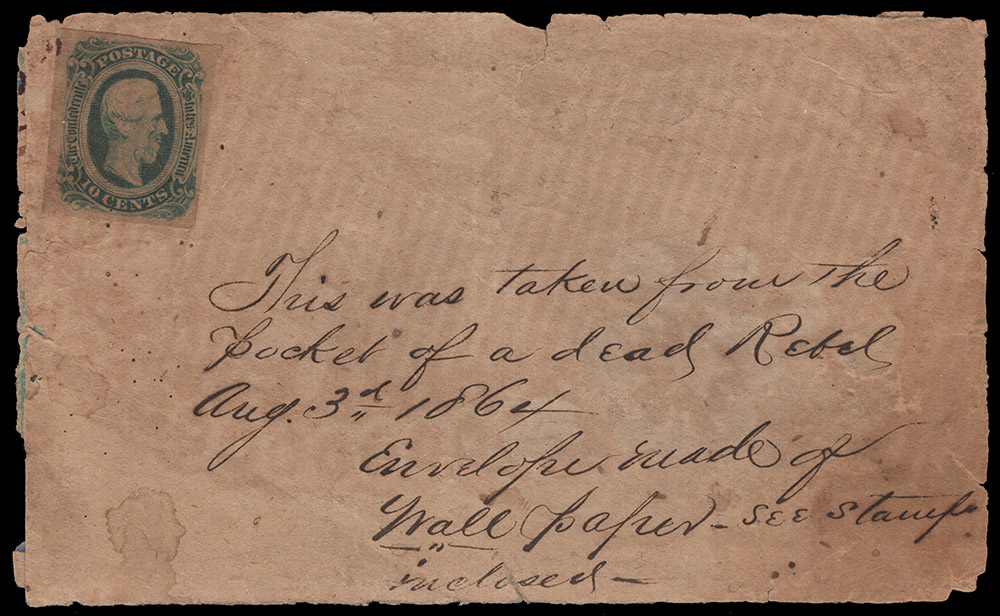 POSTAGE
The Confederate States America
10 CENTS
This was taken from the
pocket of a dead Rebel
Aug. 3d 1864
Envelope made of
Wall paper - see stamp
inclosed -